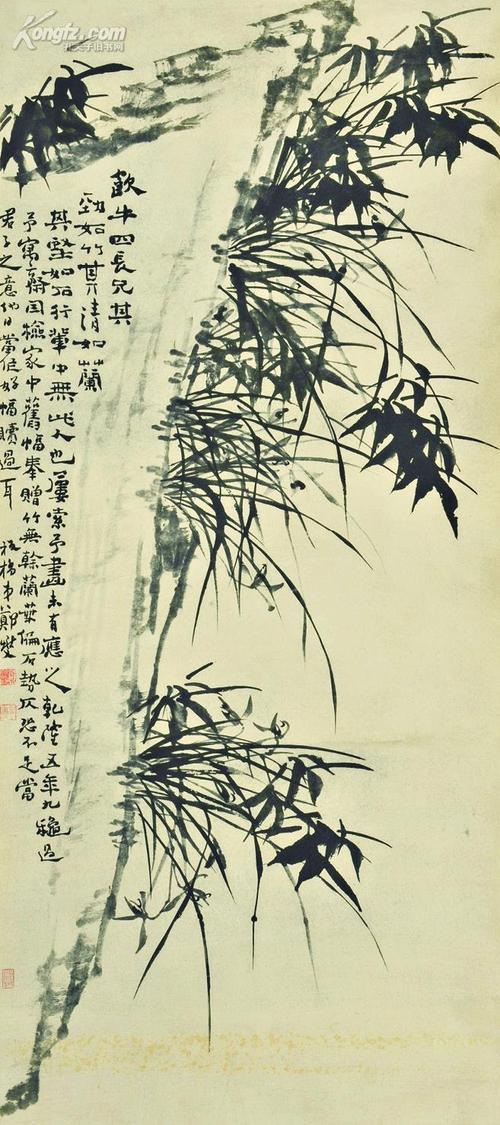 Kongfz.com
孔夫子旧书网
歗牛四長兄其
勁如竹其清如蘭
其堅如石行輩中無此人也屢索予畫未有應之乾隆五年九龝過
予寓齋因檢家中舊幅奉贈竹無餘蘭葉偏石勢仄恐不足當
君子之意他日當作好幅贖過耳 板橋弟鄭燮